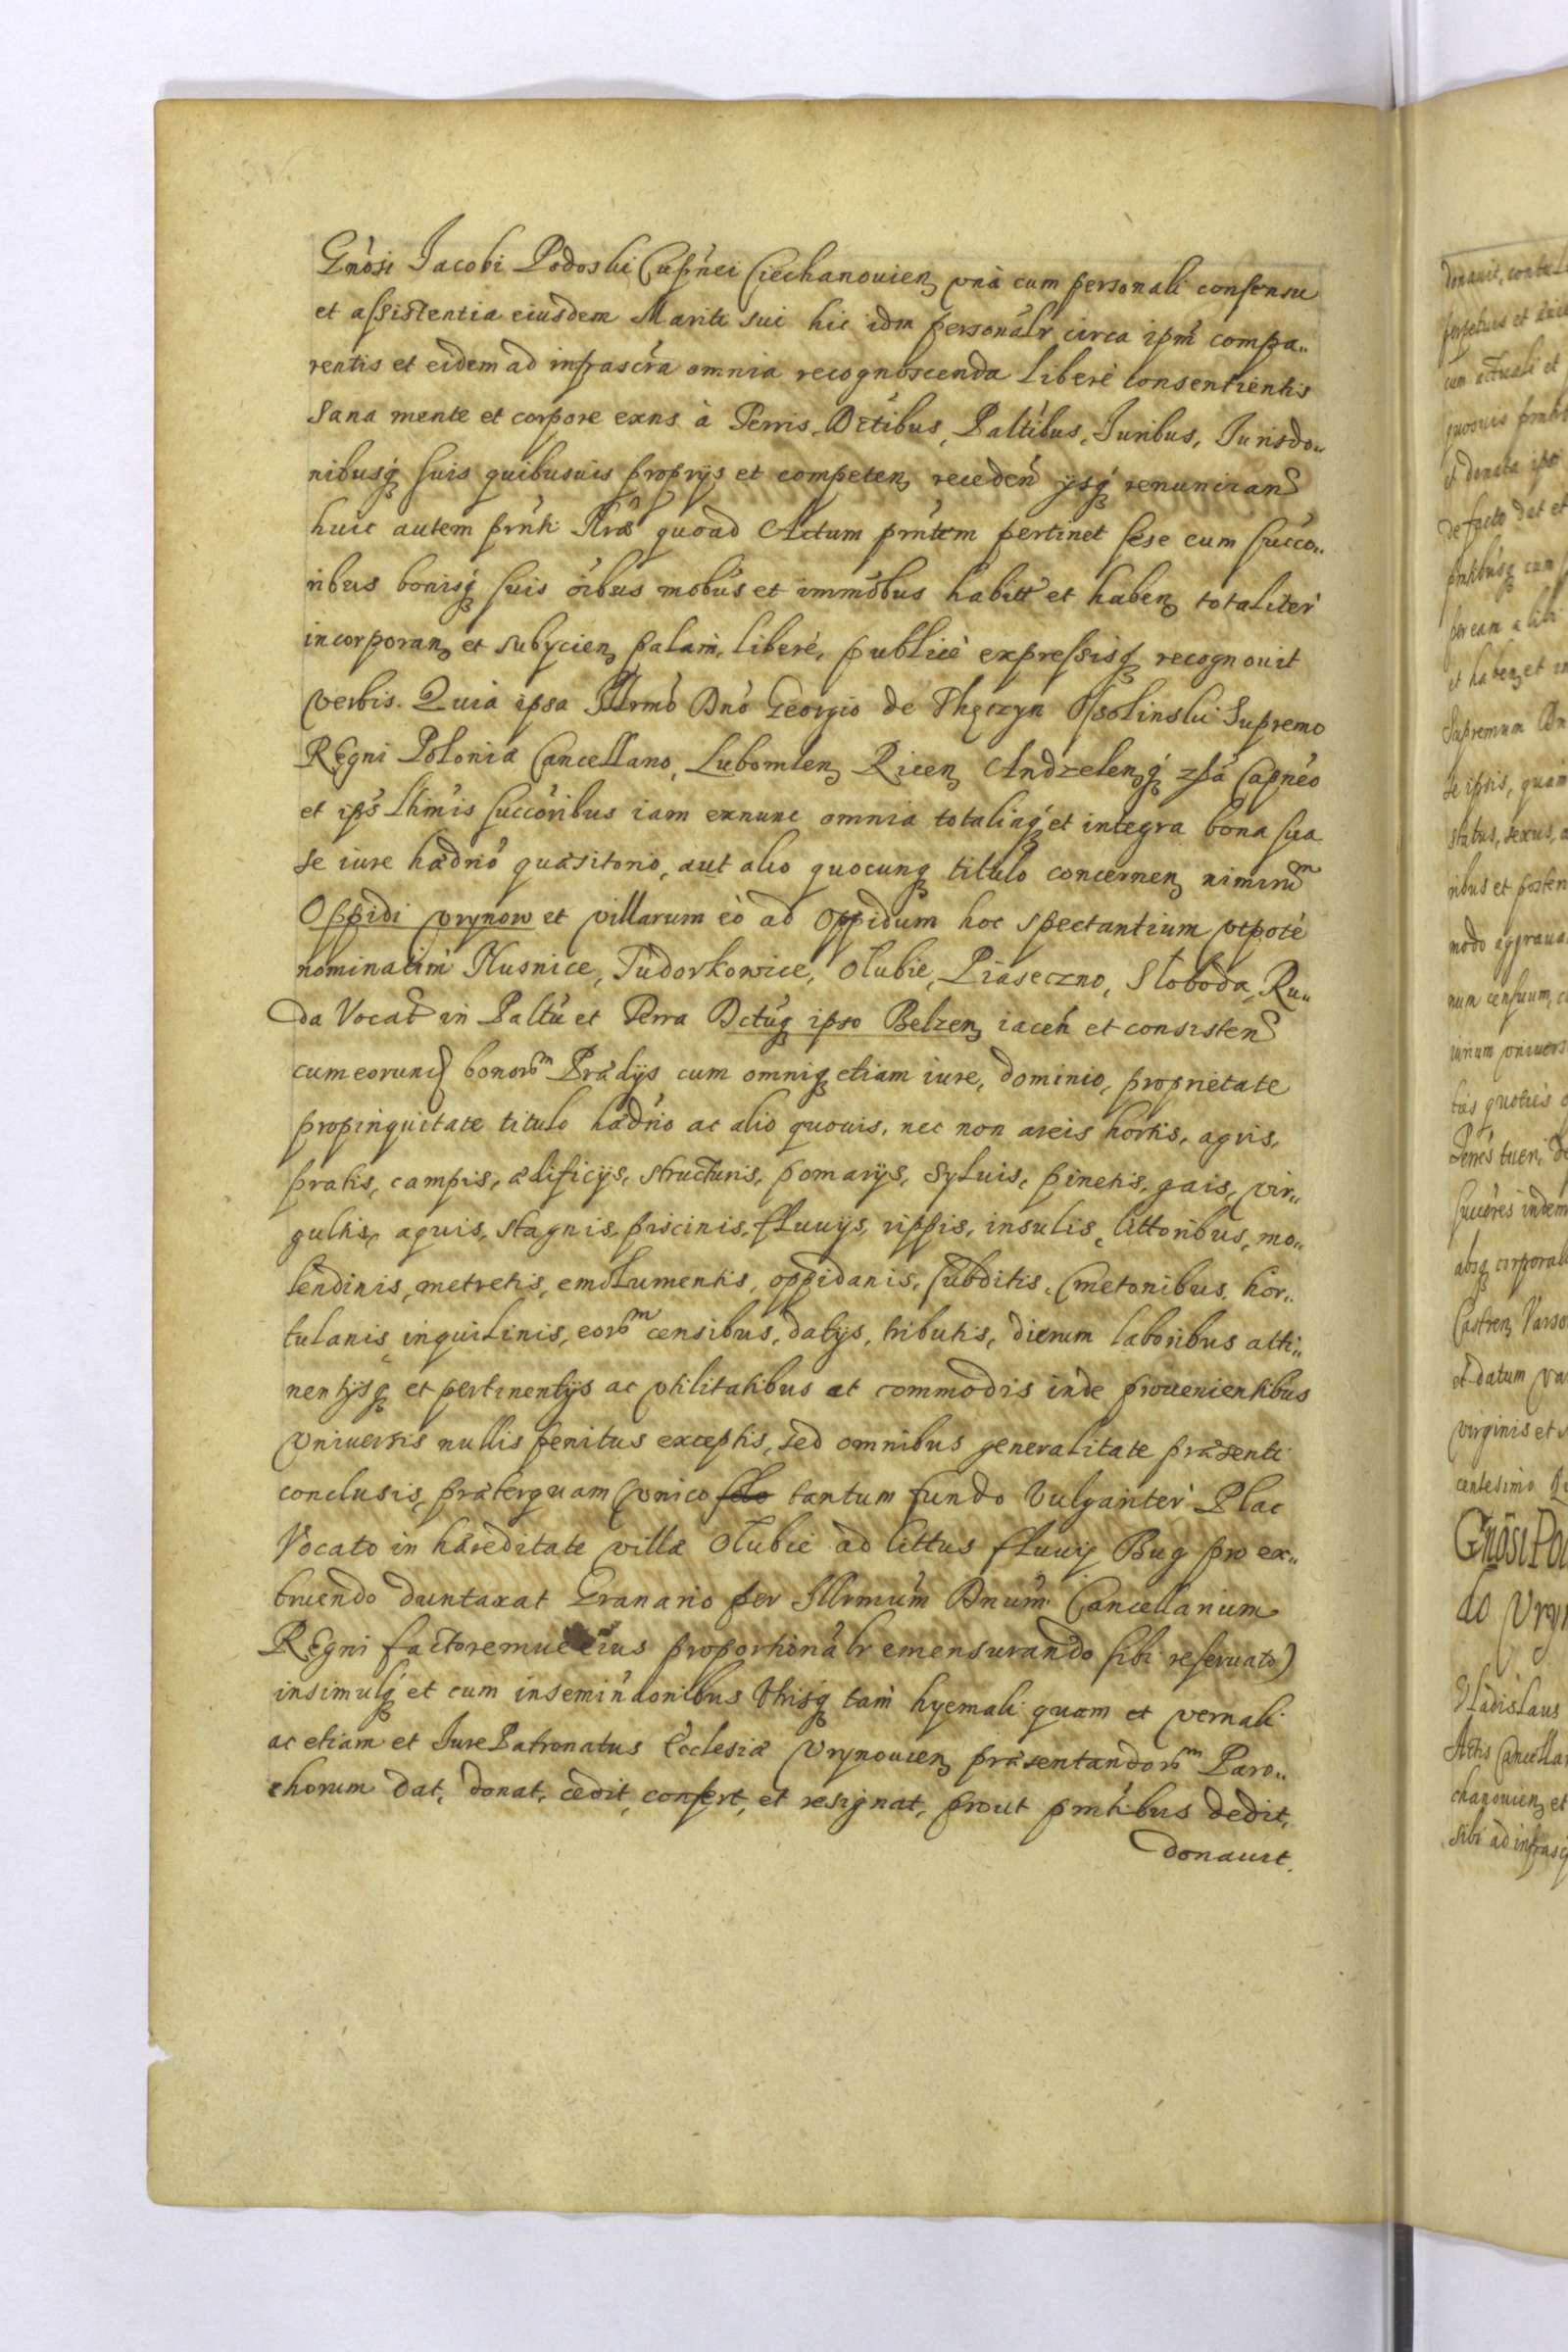 Gnosi Jacobi Podoski Capnei Ciechanouien una cum personali consensu
et assistentia eiusdem Mariti sui hic idm personalr circa ipm compa..
rentis et eidem ad infrascra omnia recognoscenda liberè consentientis
Sana mente et corpore exns à Terris, Dctibus, Paltibus, Juribus, Jurisdo..
nibusq suis quibusuis proprijs et competen receden ijsq renuncian
huic autem prnti quoad Actum prntem pertinet sese cum succo..
ribus bonisq suis oibus mobus et immobus habitt et haben totaliter
incorporan et subijcien palam, liberè, publicè expressisq recognouit
verbis. Quia ipsa Illrmo Dno Georgio de Thęczyn Ossolinski Supremo
Regni Poloniæ Cancellario, Lubomlen Ricen Andzelenq Capneo
et ips lhimis succoribus iam exnunc omnia totaliaq et integra bona sua
se iure hædrio quæsitorio, aut alio quocunq titulo concernen nimirum
Oppidi Vrynow et villarum eò ad oppidum hoc spectantium vtpote
nominatim Nusnice, Tudorkowice, Ołubie, Piaseczno, Słoboda, Ru..
da Vocat in Paltu et Terra Dctuq ipso Belzen iacen et consisten
cum eorund bonorum Prædijs cum omniq etiam iure, dominio, proprietate
propinquitate titulo hædrio ac alio quouis, nec non areis hortis, agris,
pratis, campis, ædificijs, structuris, pomarijs, syluis, pinetis, gais, vir..
gultis, aquis, stagnis, piscinis, fluuijs, rippis, insulis, littoribus, mo..
lendinis, metretis, emolumentis, oppidanis, subditis, Cmetonibus, hor..
tulanis, inquilinis, eorum censibus, datijs, tributis, dierum laboribus atti..
nentijsq et pertinentijs ac vtilitatibus at commodis inde prouenientibus
Vniuersis nullis penitus exceptis, sed omnibus generalitate præsenti
conclusis, præterquam vnico solo tantum fundo Vulgariter Plac
Vocato in hæreditate villæ Ołubie ad littus fluuij Bug pro ex..
truendo duntaxat Granario per Illrmum Dnum Cancellarium
Regni factoremue eius proportionalr emensurando sibi reseruato)
insimulq et cum inseminaonibus vtrisq tam hyemali quam et vernali
ac etiam et Jure Patronatus Ecclesiæ Vrynouien præsentandorum Paro..
chorum dat, donat, cedit, confert, et resignat, prout prntibus dedit,
donauit.